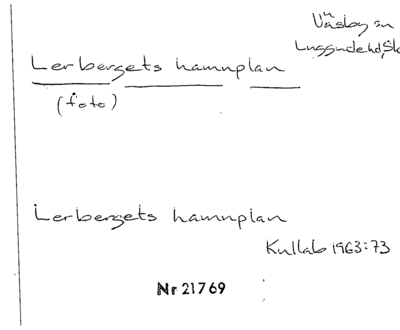 Väsby sn
Luggude hd, Sk
Lerbergets hamnplan
(foto)
Lerbergets hamnplan
Kullab 1963:73
Nr 21769